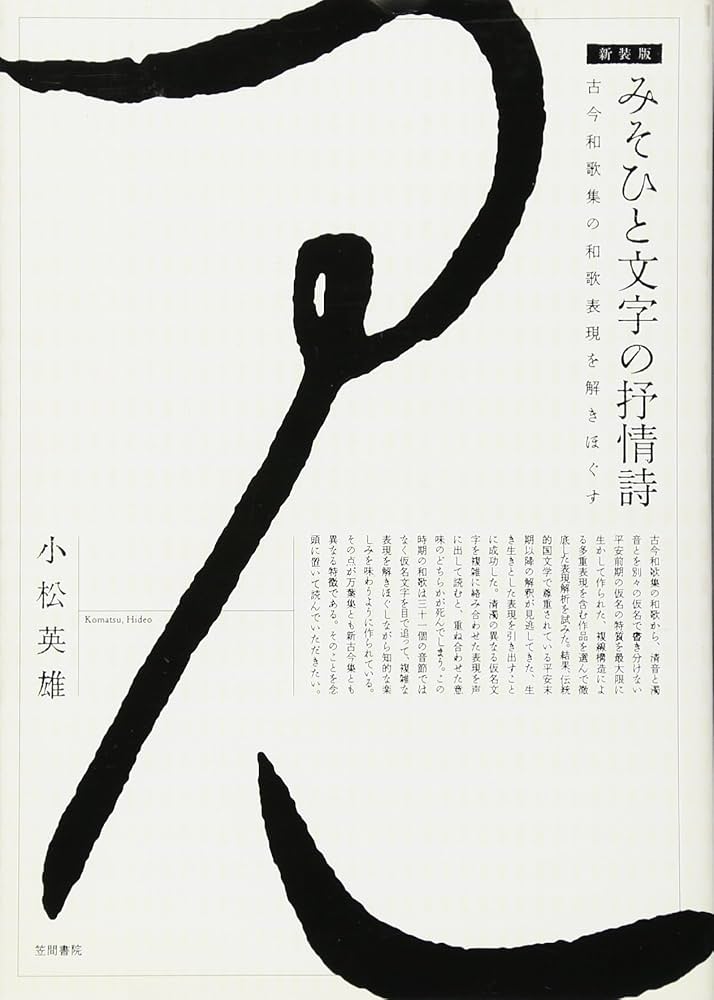 新装版
みそひと文字の抒情詩
古今和歌集の和歌表現を解きほぐす
古今和歌集の和歌から、清音と濁
音とを別々の仮名で書き分けない
平安前期の仮名の特質を最大限に
生かして作られた、複線構造によ
る多重表現を含む作品を選んで徹
底した表現解析を試みた。結果、伝統
的国文学で尊重されている平安末
期以降の解釈が見逃してきた、生
き生きとした表現を引き出すこと
に成功した。清濁の異なる仮名文
字を複雑に絡み合わせた表現を声
に出して読むと、重ね合わせた意
味のどちらかが死んでしまう。この
時期の和歌は三十一個の音節では
なく仮名文字を目で追って、複雑な
表現を解きほぐしながら知的な楽
しみを味わうように作られている。
その点が万葉集とも新古今集とも
異なる特徴である。そのことを念
頭に置いて読んでいただきたい。
小松英雄
Komatsu, Hideo
笠間書院